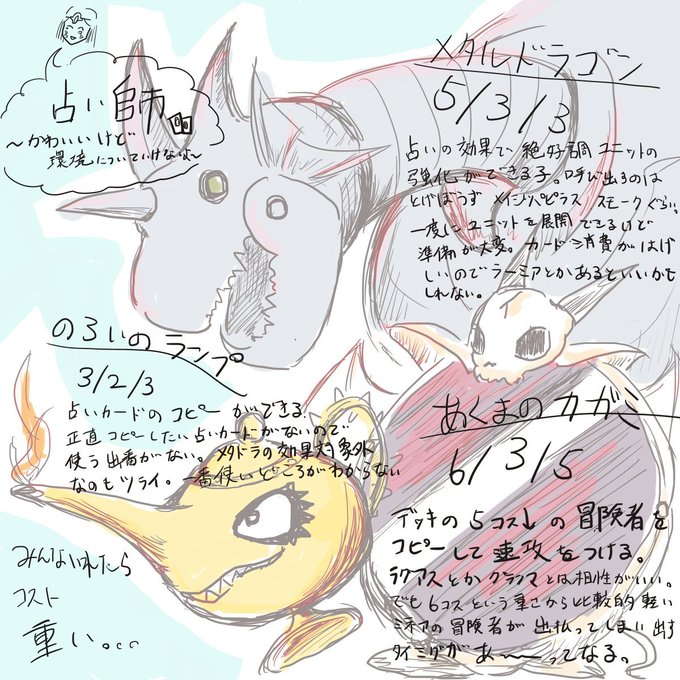 占い師
～かわいいけど
環境についていけないよ～
メタルドラゴン
5/3/3
占いの効果で、絶好調ユニットの
強化ができる子。呼び出るのは
とげぼうず メイジパピラス スモークぐらい。
一度にユニットを展開できるけど
準備が大変。カード消費がはげ
しいのでラーミアとかあるといいかも
しれない。
のろいのランプ
3/2/3
占いカードのコピーができる
正直コピーしたい占いカードがないので
使う出番がない。メタドラの効果対象外
なのもツライ。一番使いどころがわからない
あくまのカガミ
6/3/5
デッキの5コス↓の冒険者を
コピーして速攻をつける。
ラクアスとかグランマとは相性がいい。
でも6コスという重さから比較的軽い
ミネアの冒険者が出払ってしまい出す
タイミングがあ～～ってなる。
みんないれたら
コスト
重い。。。